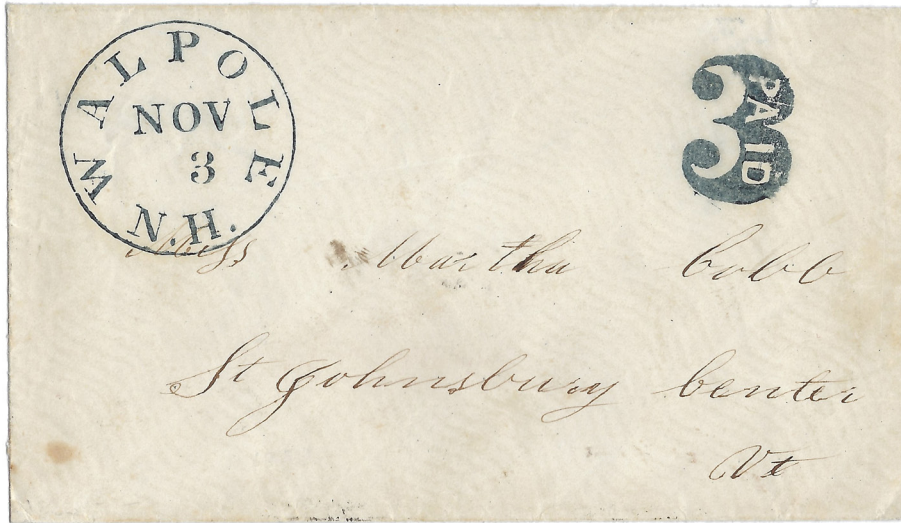 WALPOLE
NOV
3
N.H.
3
PAID
Miss Martha Cobb
St Johnsbury Center
Vt